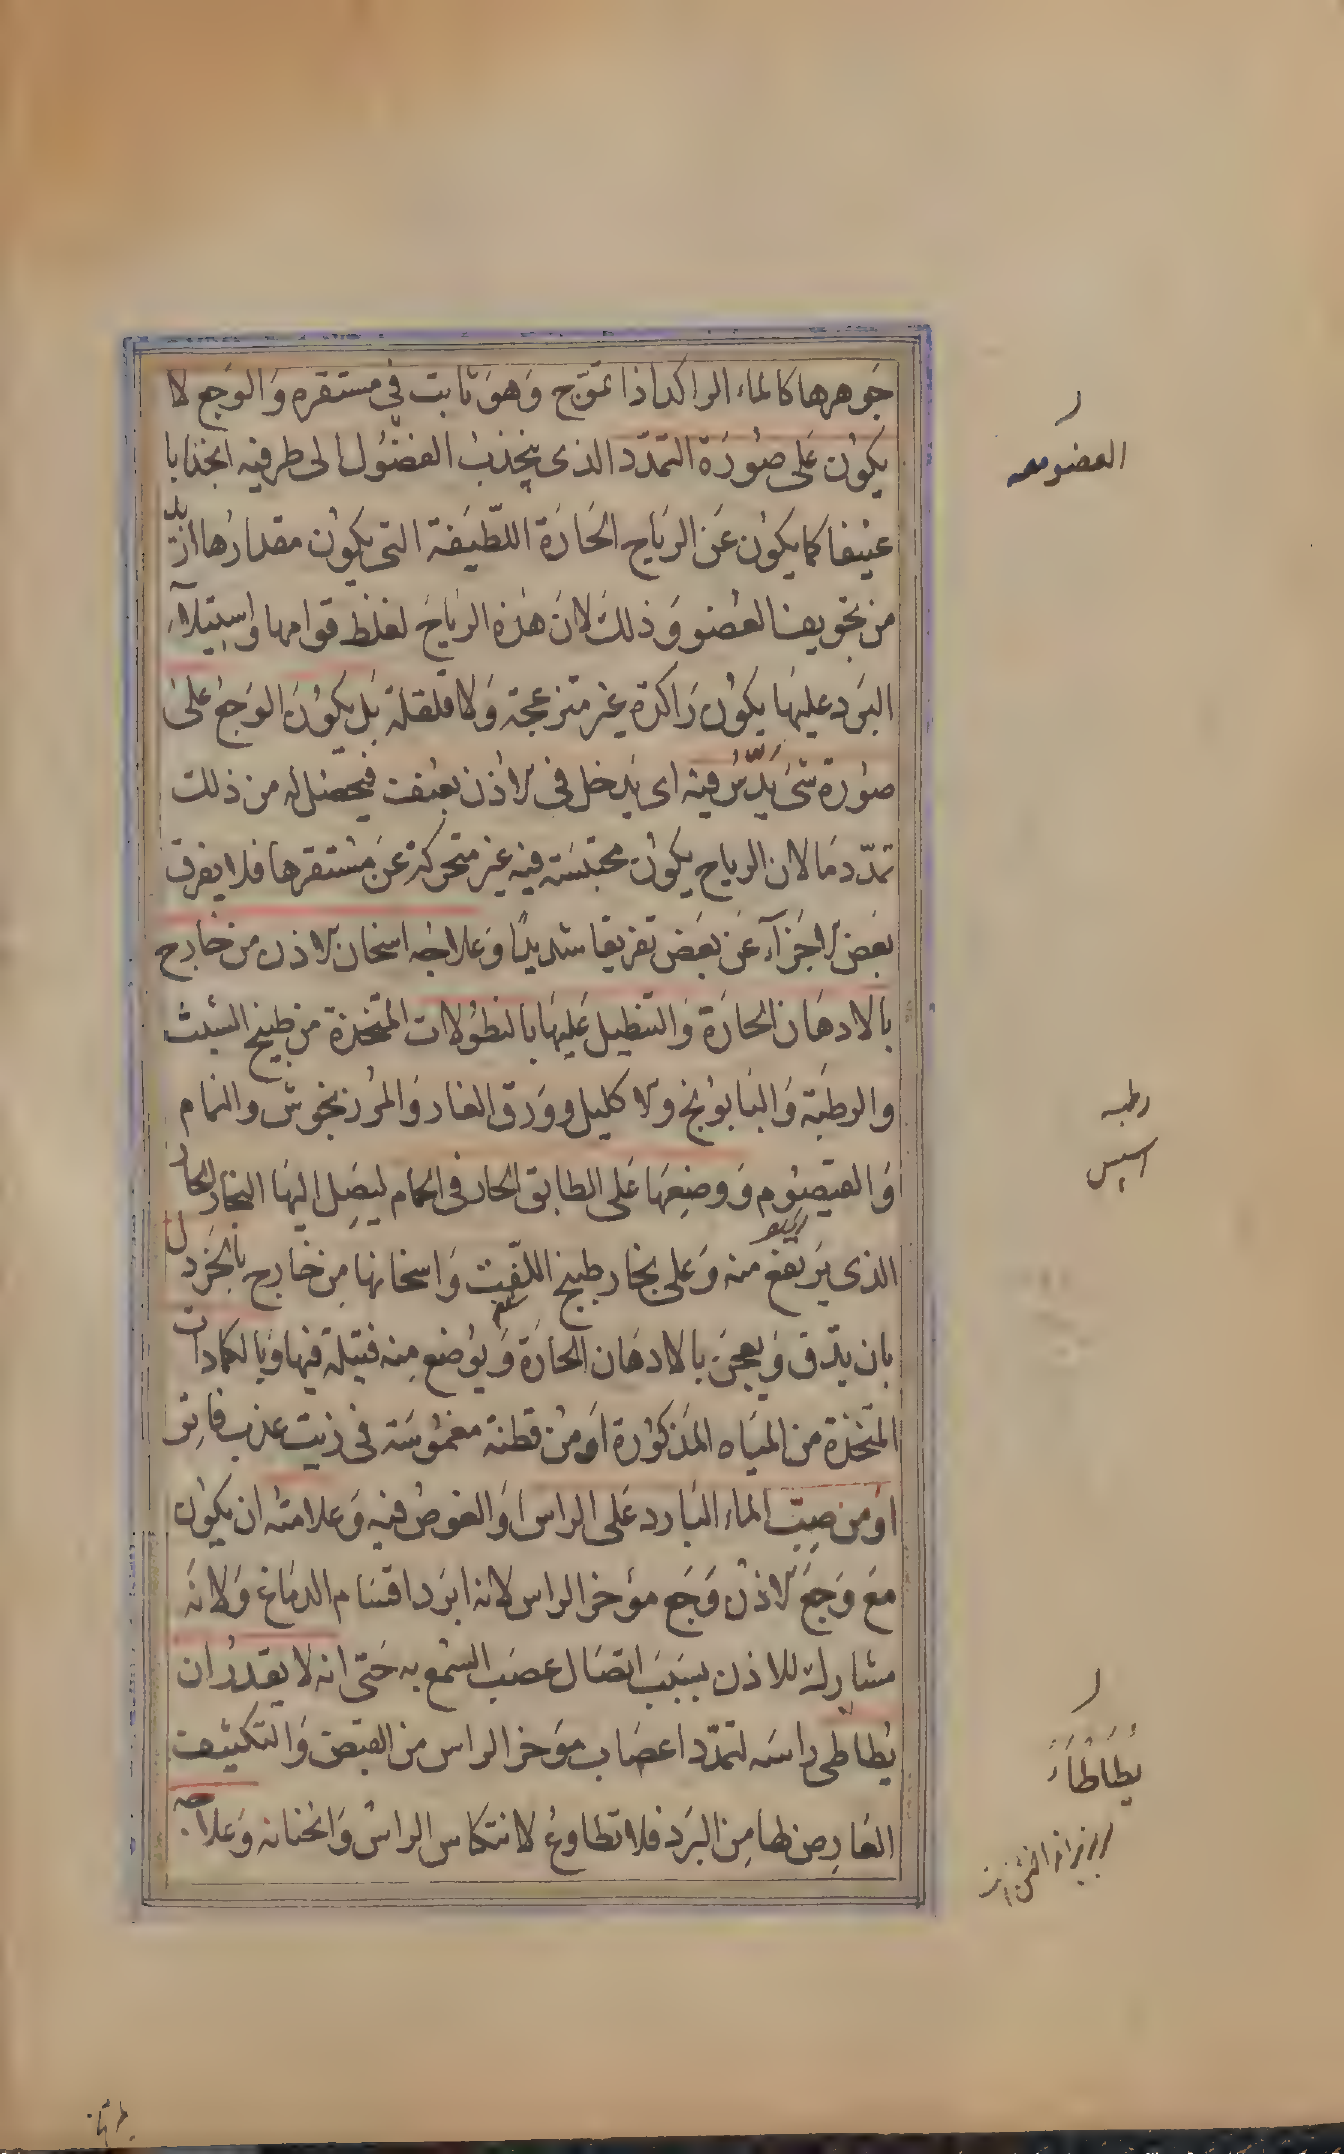 جوهرها كالماء الراكد اذا تموّج وهو ثابت فى مستقره والوجع لا
يكون على صورة التمدّد الذى ينجذب العضو الى طرفيه انجذابا
عنيفا كما يكون عن الرياح الحارة اللطيفة التى يكون مقدارها ازيد
من تجويف العضو وذلك لان هذه الرياح لغلظ قوامها واستيلاء
البرد عليها يكون راكدة غير منزعجة ولا قلقلة بل يكون الوجع على
صورة شئ يدسّ فيه اى يدخل فى الاذن بعنف فيحصل له من ذلك
تمدّد ما لان الرياح يكون محتبسة فيه غير متحركة عن مستقرها فلا يفرق
بعض الاجزآء عن بعض تفريقا شديدا وعلاجه اسخان الاذن من خارج
بالادهان الحارة والتنطيل عليها بالنطولات المتخذة من طبيخ الشبث
والرطبة والبابونج والاكليل وورق الغار والمرزنجوش والنمام
والقيصوم ووضعها على الطابق الحار فى الحمام ليصل اليها البخار الحار
الذى يرتفع منه وعلى بخار طبيخ اللفت واسخانها من خارج بالخردل
بان يدّق ويعجن بالادهان الحارة ويوضع منه فتيلة فيها وبالكمادات
المتخذة من المياه المذكورة او من قطنة مغموسة فى زيت عذب فاتر
او من صبّ الماء البارد على الراس او الغوص فيه وعلامته ان يكون
مع وجع الاذن وجع مؤخر الراس لانه ابرد اقسام الدماغ ولانه
مشارك للاذن بسبب اتصال عصب السمع به حتى انه لا يقدر ان
يطاطى راسه لتمدّد اعصاب مؤخر الراس من القبض والتكثيف
العارض لها من البرد فلا تطاوع لانتكاس الراس وانحنائه وعلاجه
العضو معه
رطبه
اسپس
يطاطاء